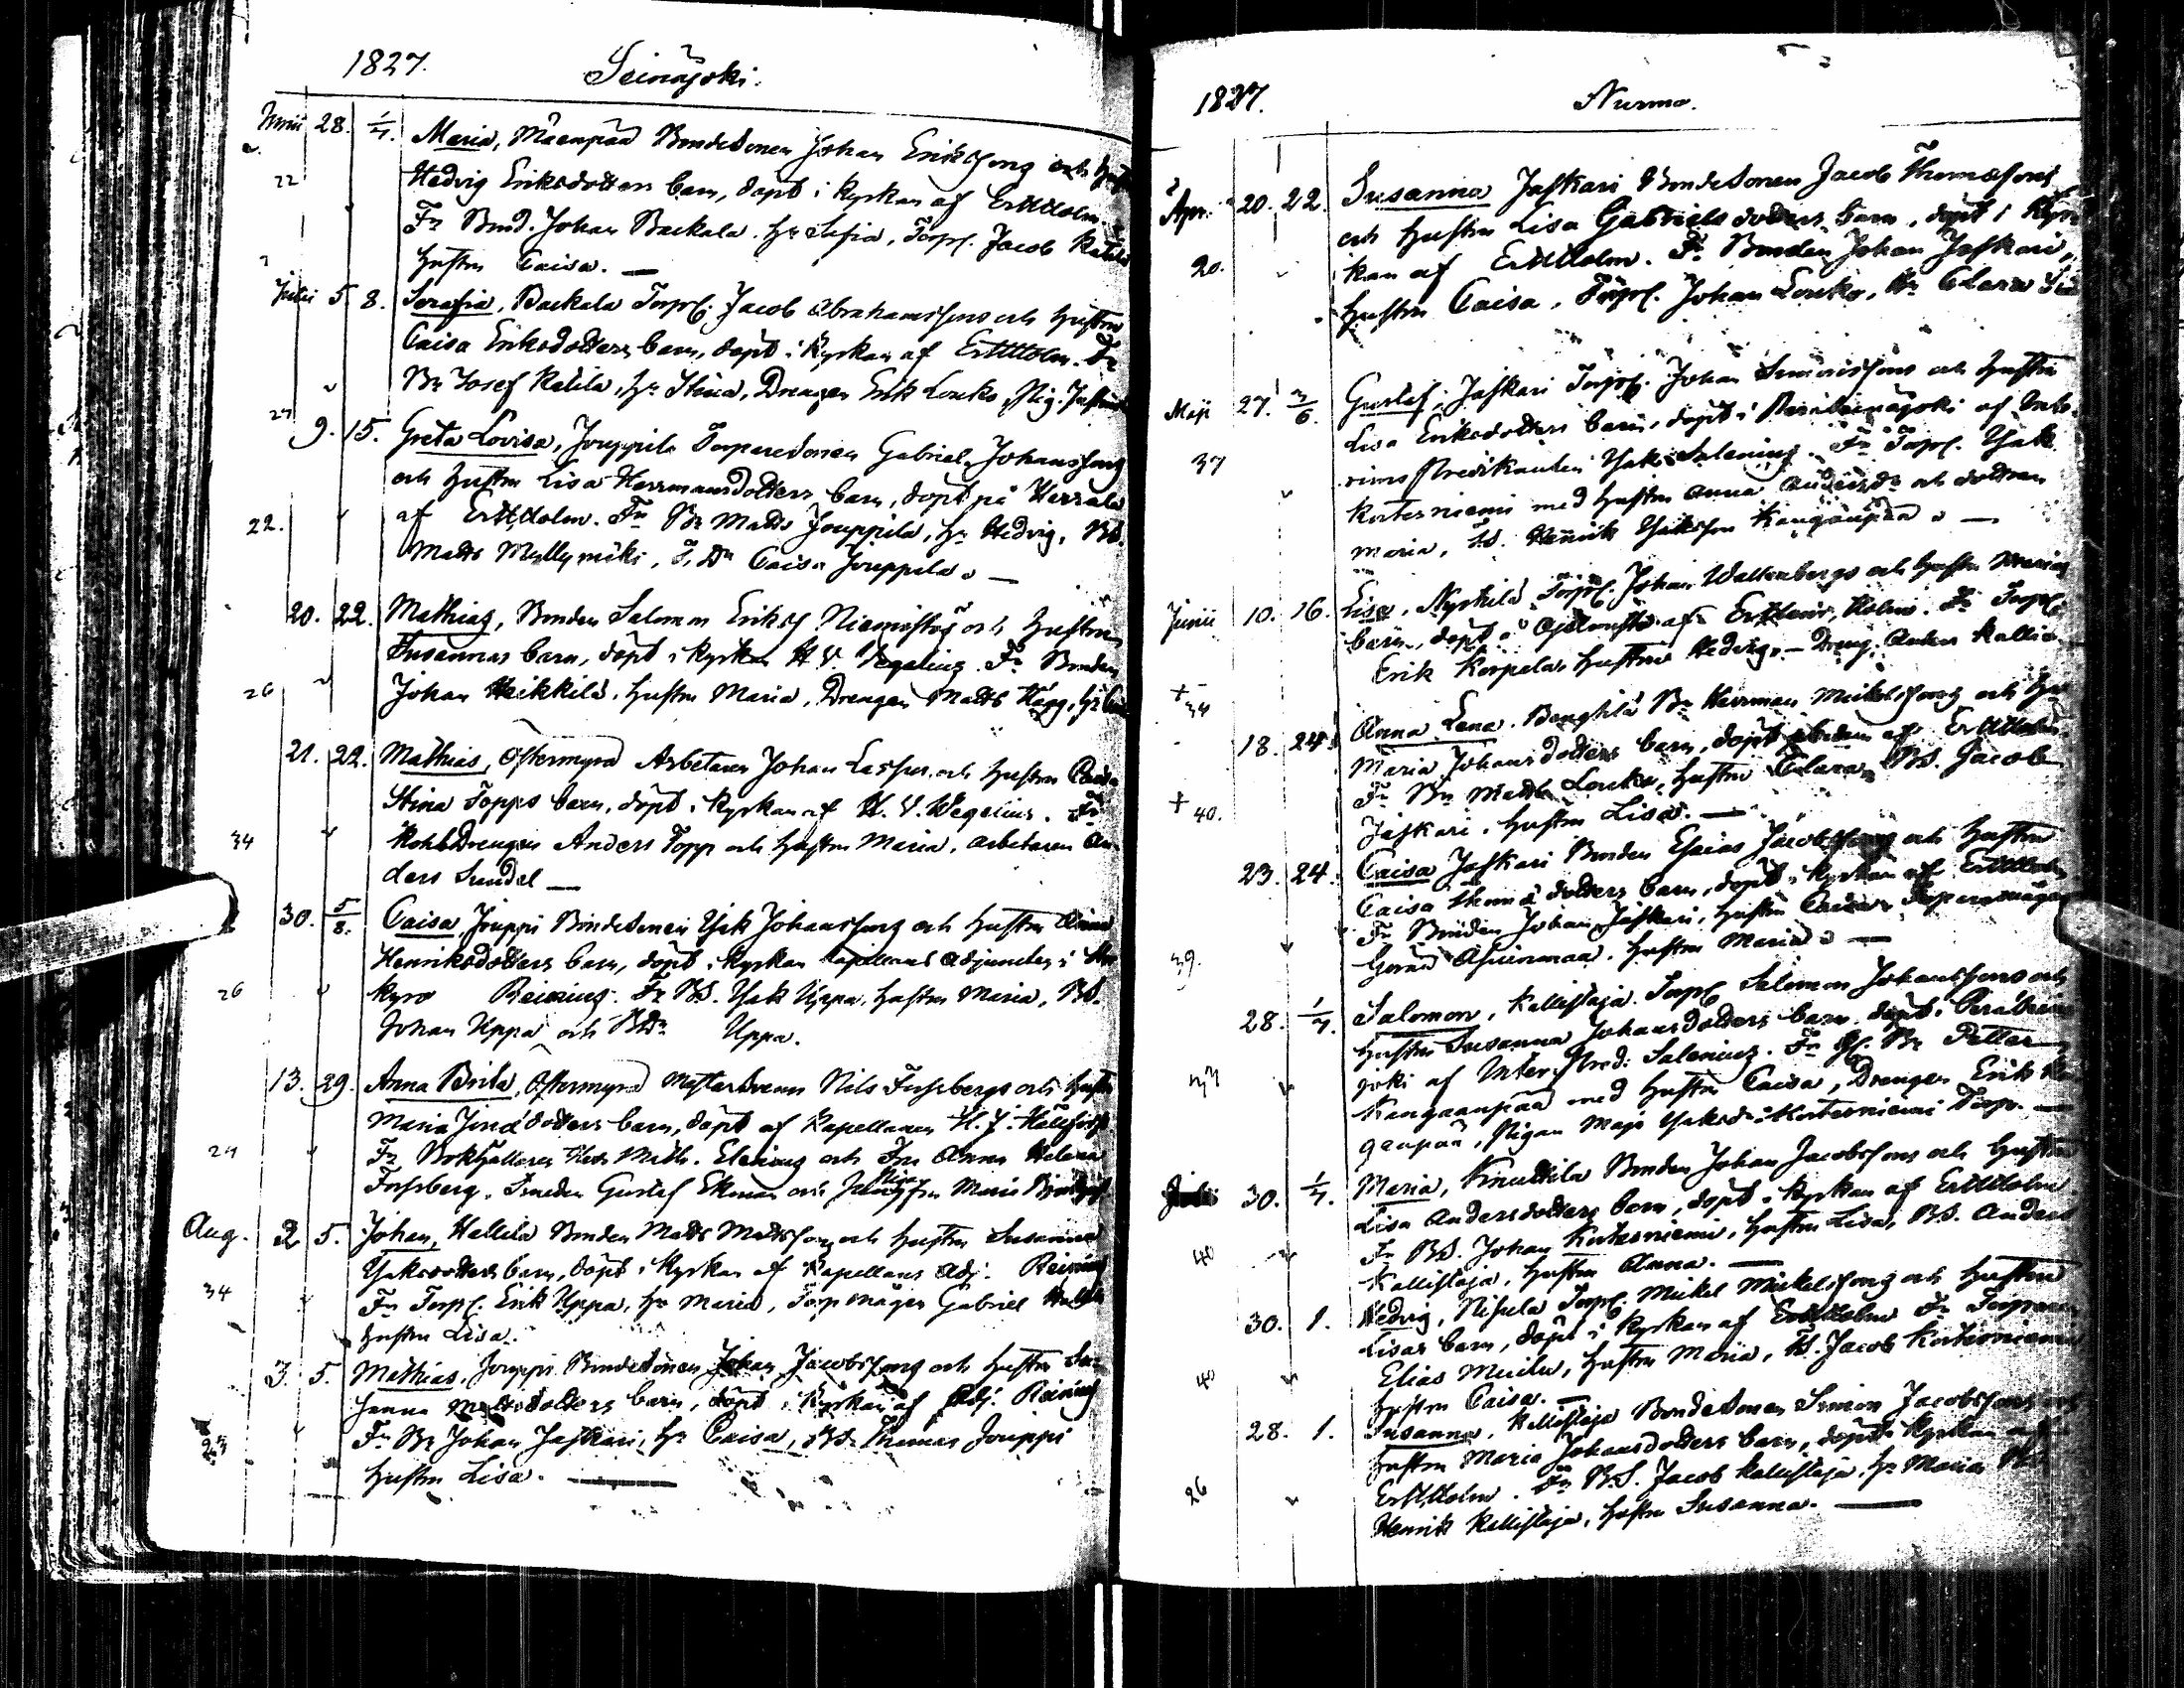 1827. Seinäjoki.
Junii 28. 1/7. Maria, Mäenpää Bondesonen Johan Erikssons och
22 Hedvig Eriksdotters barn, döpt i kyrkan af Er. M. Holm.
Fr Bond. Johan Backala. Hr Sofia, Torp. Jacob Katila
hustru Caisa. —
Julii 5 8. Serafia, Backala Torp. Jacob Abrahamssons och hustru
Caisa Eriksdotters barn, döpt i kyrkan af Er. M. Holm. Fr
Br Josef Katila, Hr Stina, Drengen Erik Louko, Pig.
27
9. 15. Greta Lovisa, Jouppila Torparesonen Gabriel Johanssons
och hustru Lisa Herrmansdotters barn, döpt på Herrala
22. af Er. M. Holm. Fr Br Matts Jouppila, Hr Hedvig, BS.
Matts Myllymäki, T. Dr Caisa Jouppila. —
20. 22. Mathias, Bonden Salomon Eriks. Niemistös och hustrun
Susannas barn, döpt i kyrkan H. V. Vegelius. Fr Bonden
26 Johan Heikkilä, hustru Maria, Drengen Matts Hägg, Hr
21. 22. Mathias, Östermyra Arbetaren Johan Lassus och hustru
Stina Topps barn, döpt i kyrkan af H. V. Wegelius. Fr
34 Drengen Anders Topp och hustru Maria, arbetaren An
ders Sundel —
30. 5/8. Caisa Jouppi Bondesonen Isak Johanssons och hustru
Henriksdotters barn, döpt i kyrkan Kapellans Adjuncten i
26 kyro Reinius. Fr BS. Isak Uppa, hustru Maria, BS.
Johan Uppa och BDr Uppa.
13. 29. Anna Brita, Östermyra Nils Forsbergs och hustru
Maria dotters barn, döpt af Kapellanen H. J.
24 Fr Bokhållaren Math. Elenius och Fru Anna Helena
Forsberg, Smeden Gustaf Ekman och Jungfru Maria
Aug. 2 5. Johan, Hallila Bonden Matts Mattssons och hustru Susanna
Isaksdotters barn, döpt i kyrkan af Kapellans Adj. Reinius
34 Fr Torp. Erik Uppa, Hr Maria, Torp mågen Gabriel
hustru Lisa.
3. 5. Mathias, Jouppi Bondesonen Johan Jacobssons och hustru Su
sanna Mattsdotters barn, döpt i kyrkan af Adj. Reinius
25 Fr Br Johan Jaskari, Hr Caisa, BS. Thomas Jouppi
hustru Lisa. —
1827. Nurmo.
Apr. 20. 22. Susanna Jaskari Bondesonen Jacob Thomassons
och hustru Lisa Gabrielsdotters barn, döpt i kyr
20. kan af Er. M. Holm. Fr Bonden Johan Jaskari,
hustru Caisa, Torp. Johan Louko, Hr Clara
Maji 27. 3/6. Gustaf, Jaskari Torp. Johan Simonssons och hustru
Lisa Eriksdotters barn, döpt i Peräseinäjoki af Inte
37 rims Predikanten Isak Salenius. Fr Torp. Isak
Kortesniemi med hustru Anna och dottren
Maria, T.S. Henrik Isaksson Kangaanpää. —
Junii 10. 16. Lisa, Nyrhilä Torp. Johan Wallenbergs och hustru Marias
barn, döpt af Holm. Fr Torp.
Erik Korpela, hustru Hedvig. — Dreng. Anders Kallio
+ 34
18. 24. Anna Lena. Benghilä Br Herrman Mickelssons och Hr
Maria Johansdotters barn, döpt af Er. M. Holm
Fr Br Matts Louko, hustru Clara, BS. Jacob
+ 40. Jaskari, hustru Lisa. —
23. 24. Caisa Jaskari Bonden Esaias Jacobssons och hustru
Caisa Thomædotters barn, döpt i kyrkan af Er. M. Holm
Fr Bonden Johan Jaskari, hustru Caisa, Torparemågen
39. Göran Ahvenmaa, hustru Maria. —
28. 1/7. Salomon, Kallistaja Torp. Salomon Johanssons och
hustru Susanna Johansdotters barn, döpt i Peräsein
joki af Inter. Pred. Salenius. Fr Br Petter
37 Kangaanpää med hustru Caisa, Drengen Erik Kan
ganpää, Pigan Maja Isaksdr Kortesniemi Torp. —
Julii 30. 1/7. Maria, Knuuttila Bonden Johan Jacobssons och hustru
Lisa Andersdotters barn, döpt i kyrkan af Er. M. Holm
40 Fr BS. Johan Kortesniemi, hustru Lisa, BS. Anders
Kallistaja, hustru Anna. —
30. 1. Hedvig, Nisula Torp. Mickel Mickelssons och hustru
Lisas barn, döpt i kyrkan af Er. M. Holm Fr Torparen
40 Elias Mucila, hustru Maria, BS. Jacob Kortesniemi
hustru Caisa. —
28. 1. Susanna, Kallistaja Bondesonen Simon Jacobssons och
hustru Maria Johansdotters barn, döpt i kyrkan af
26 Er. M. Holm. Fr B.S. Jacob Kallistaja, Hr Maria, BS.
Henrik Kallistaja, hustru Susanna. —